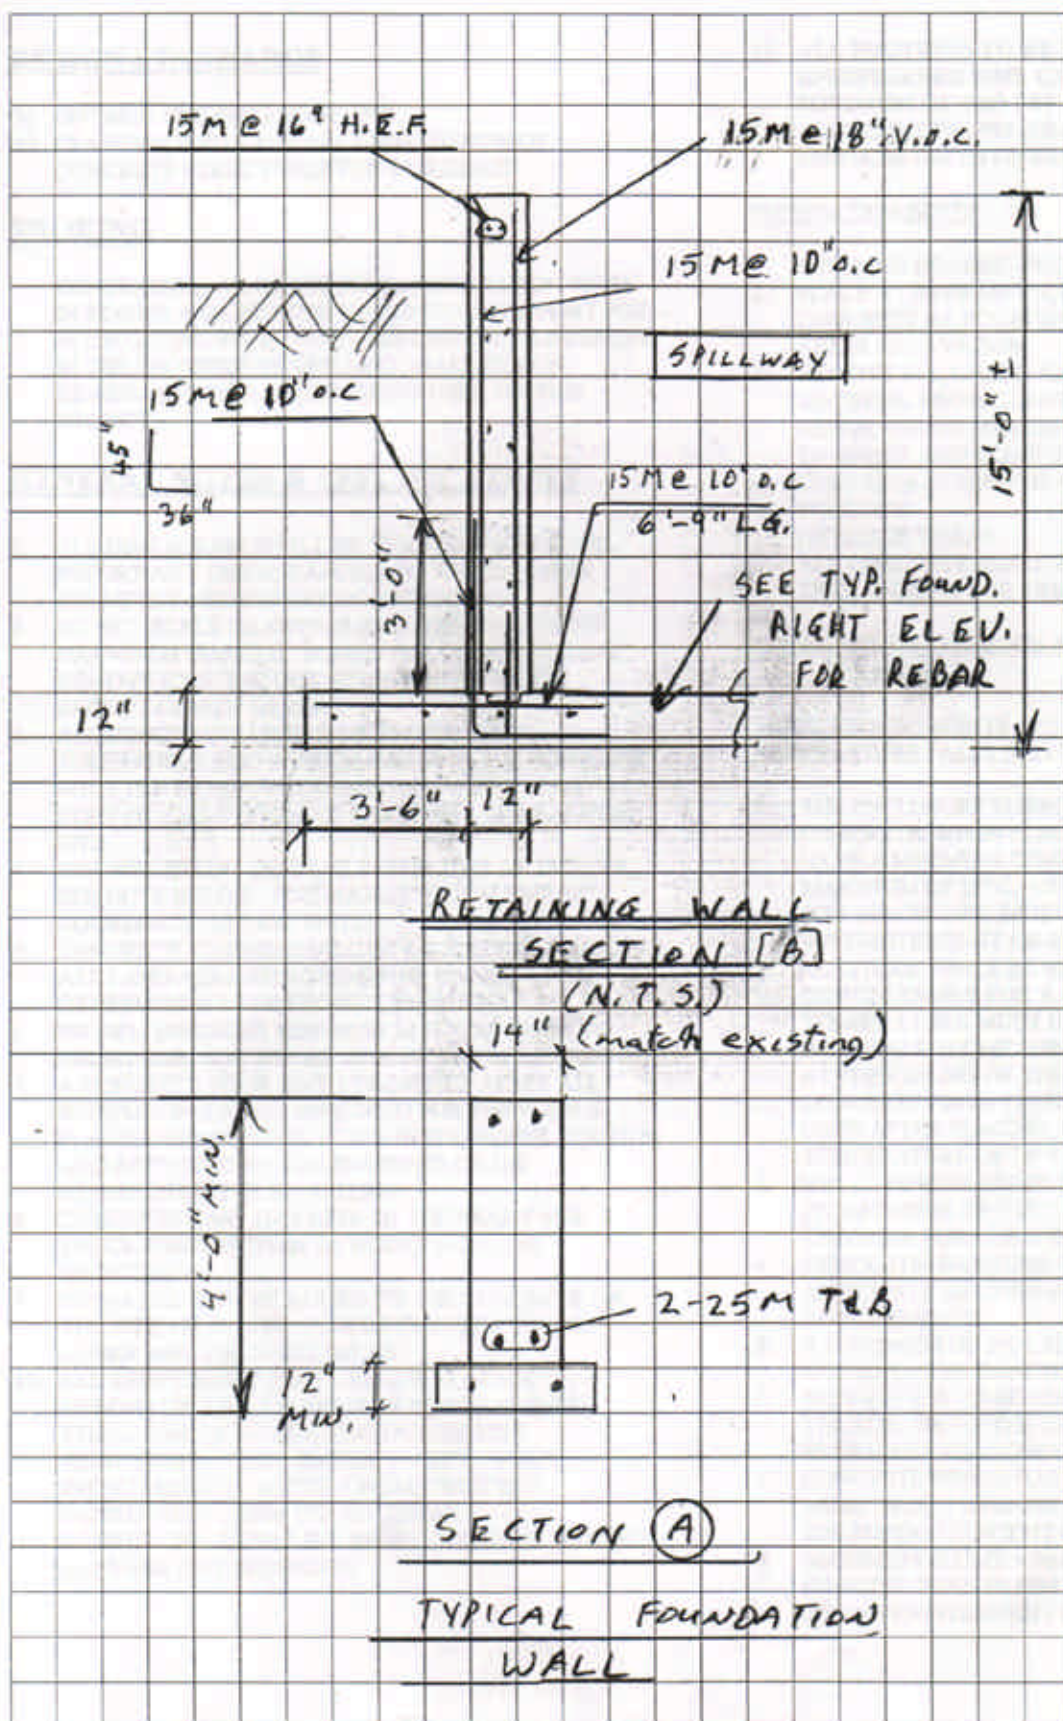 15M @ 16" H.E.F.
15M @ 18" V.O.C.
15M @ 10" O.C
SPILLWAY
15'-0" ±
15M @ 10" O.C
45"
36"
15M @ 10" O.C
6'-9" LG.
3'-0"
SEE TYP. FOUND.
RIGHT ELEV.
FOR REBAR
12"
3'-6"
12"
RETAINING WALL
SECTION [B]
(N.T.S.)
14" (match existing)
4'-0" MIN.
2-25M T&B
12"
MIN.
SECTION A
TYPICAL FOUNDATION
WALL